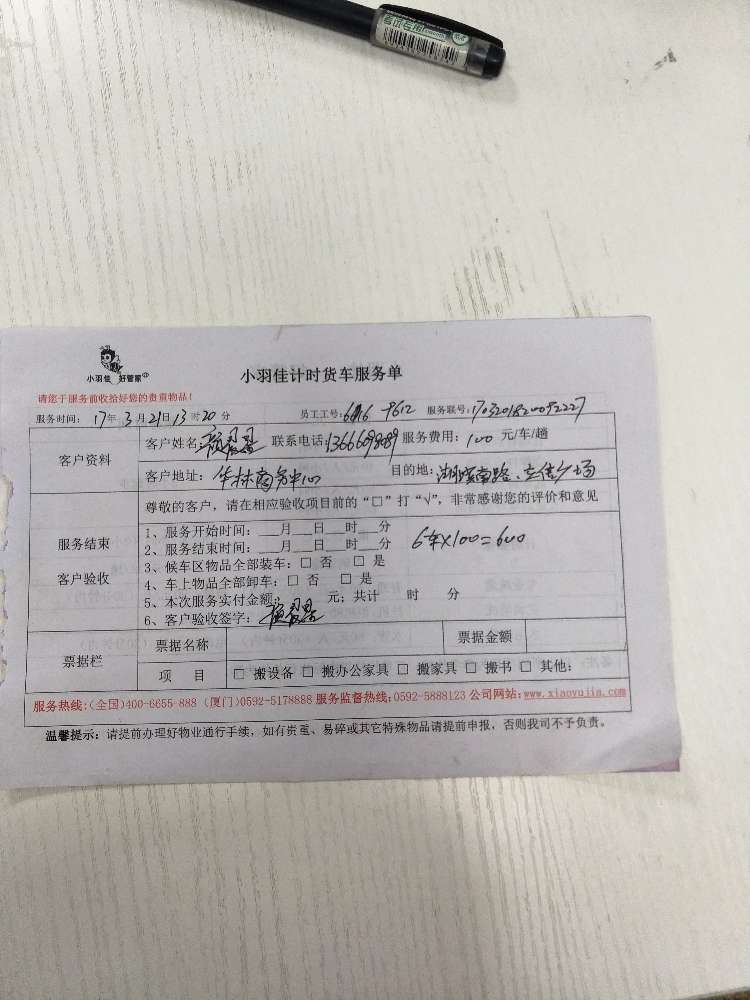 考试专用
小羽佳 好管家
小羽佳计时货车服务单
请您于服务前收拾好您的贵重物品!
服务时间: 17年 3月 21日 13时 20分 员工工号: 9612 服务联号:
客户资料
客户姓名: 联系电话: 服务费用: 100 元/车/趟
客户地址: 华林商务中心 目的地: 湖滨南路、立信广场
尊敬的客户, 请在相应验收项目前的“□”打“√”, 非常感谢您的评价和意见
服务结束
客户验收
1、服务开始时间: ___月___日___时___分
2、服务结束时间: ___月___日___时___分 6车×100=600
3、候车区物品全部装车: □ 否 □ 是
4、车上物品全部卸车: □ 否 □ 是
5、本次服务实付金额: 元; 共计 时 分
6、客户验收签字:
票据栏
票据名称 票据金额
项 目 □ 搬设备 □ 搬办公家具 □ 搬家具 □ 搬书 □ 其他:
服务热线:(全国)400-6655-888 (厦门)0592-5178888 服务监督热线:0592-5888123 公司网站:www.xiaoyujia.com
温馨提示: 请提前办理好物业通行手续, 如有贵重、易碎或其它特殊物品请提前申报, 否则我司不予负责。